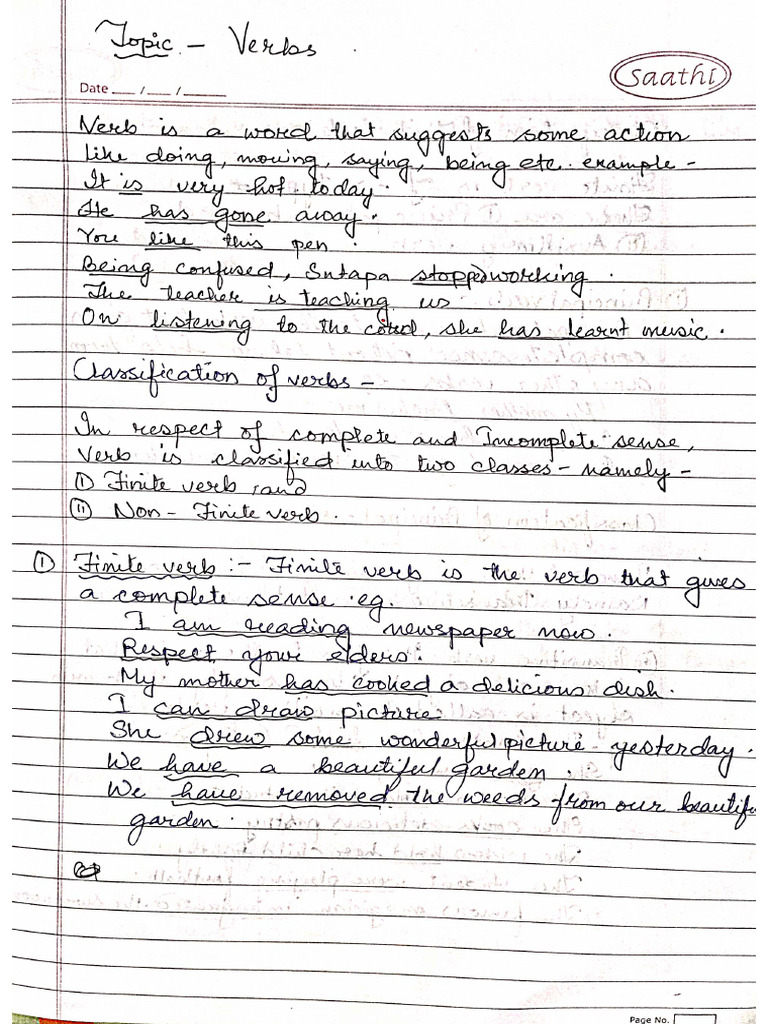 Topic - Verbs.
saathi
Date ___/___/_____
Verb is a word that suggests some action
like doing, moving, saying, being etc. example -
It is very hot today.
He has gone away.
You like this pen.
Being confused, Sutapa stopped working.
The teacher is teaching us.
On listening to the, she has learnt music.
Classification of verbs -
In respect of complete and Incomplete sense,
verb is classified into two classes - namely -
(i) Finite verb, and
(ii) Non - Finite verb.
(i) Finite verb :- Finite verb is the verb that gives
a complete sense. eg.
I am reading newspaper now.
Respect your elders.
My mother has cooked a delicious dish.
I can draw picture
She drew some wonderful picture yesterday.
We have a beautiful garden.
We have removed the weeds from our beautiful
garden.
Page No.